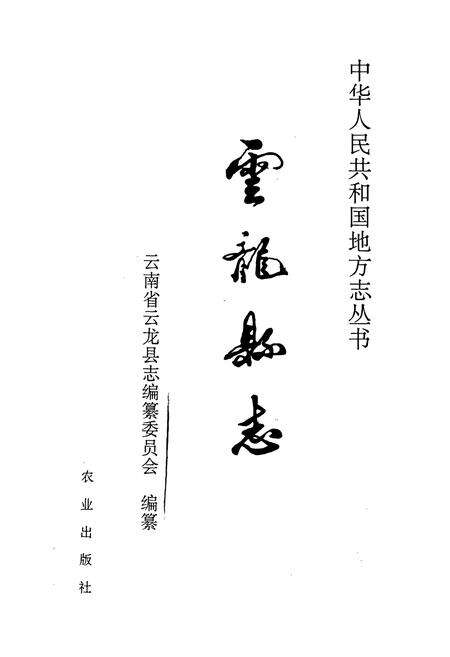 中华人民共和国地方志丛书
雲龍縣志
云南省云龙县志编纂委员会 编纂
农业出版社